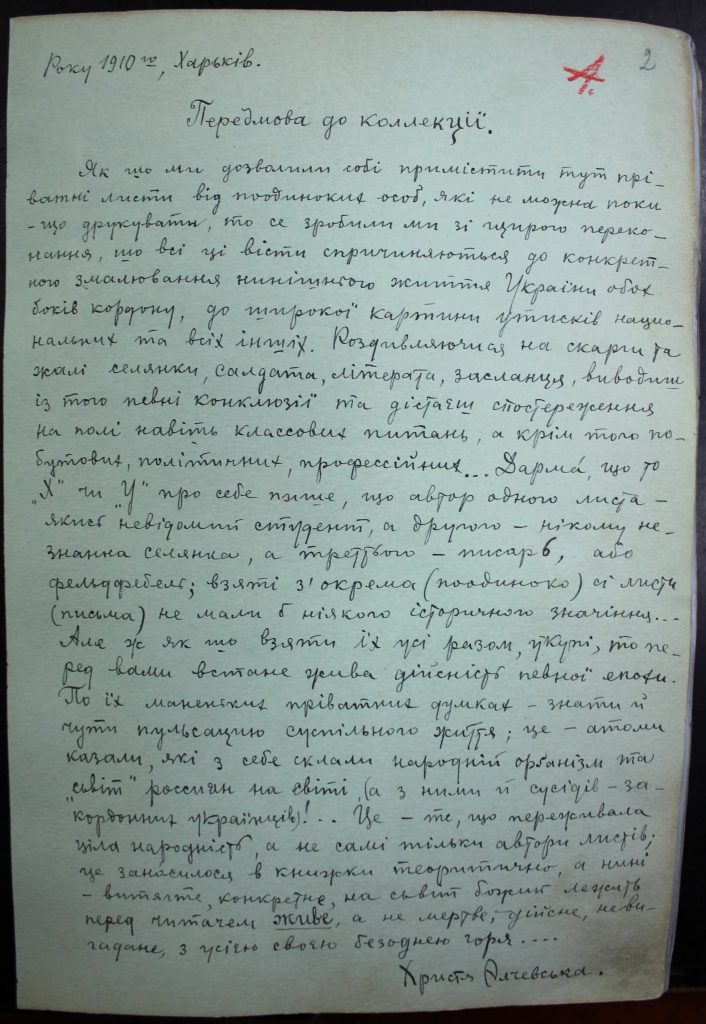 Року 1910го, Харьків.
2
Передмова до коллекції.
Як що ми дозволили собі примістити тут прі-
ватні листи від поодиноких особ, які не можна поки
-що друкувати, то се зробили ми зі щирого переко-
нання, що всі ці вісти спричиняються до конкрет-
ного змалювання нинішнього життя України обох
боків кордону, до широкої картини утисків націо-
нальних та всіх інших. Роздивляючися на скарги та
жалі селянки, салдата, літерата, засланця, виводиш
із того певні конклюзії та дістаєш спостереження
на полі навіть классових питань, а крім того по-
бутових, політичних, профессійних... Дарма́, що то
"Х" чи У" про себе пише, що автор одного листа –
якийсь невідомий студент, а другого – нікому не-
знанна селянка, а третього – писарь, або
фельдфебель; взяті з'окрема (поодиноко) сі листи
(письма) не мали б ніякого історичного значіння...
Але ж як що взяти їх усі разом, укупі, то пе-
ред вами встане жива дійсність певної епохи.
По їх маненьких пріватних думках – знати й
чути пульсацию суспільного життя; це – атоми
казали, які з себе склали народній орґанізм та
"сьвіт" россиян на світі (а з ними й сусідів – за-
кордонних українців)!.. Це – те, що переживала
ціла народність, а не самі тільки автори листів;
це заносилося в книжки теоритично, а нині
– витягте, конкретне, на сьвіт божий лежить
перед читачем живе, а не мертве; дійсне, неви-
гадане, з усією своєю безоднею горя....
Христя Алчевська.